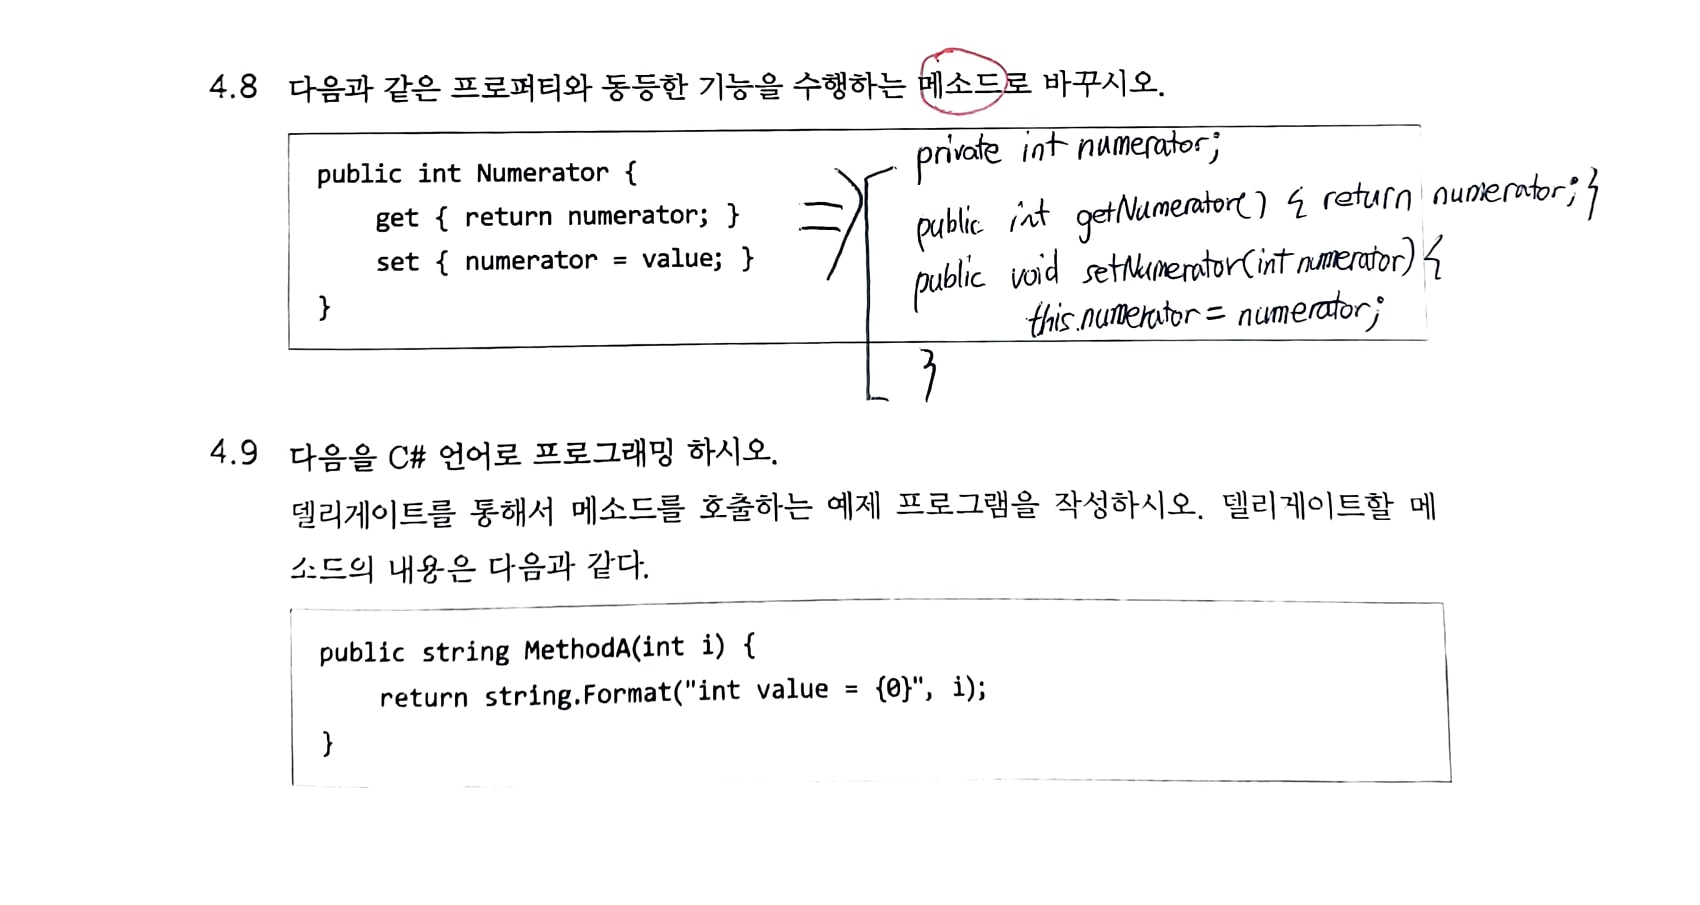 4.8 다음과 같은 프로퍼티와 동등한 기능을 수행하는 메소드로 바꾸시오.
public int Numerator {
get { return numerator; }
set { numerator = value; }
}
⇒
private int numerator;
public int getNumerator() { return numerator; }
public void setNumerator(int numerator) {
this.numerator = numerator;
}
4.9 다음을 C# 언어로 프로그래밍 하시오.
델리게이트를 통해서 메소드를 호출하는 예제 프로그램을 작성하시오. 델리게이트할 메
소드의 내용은 다음과 같다.
public string MethodA(int i) {
return string.Format("int value = {0}", i);
}